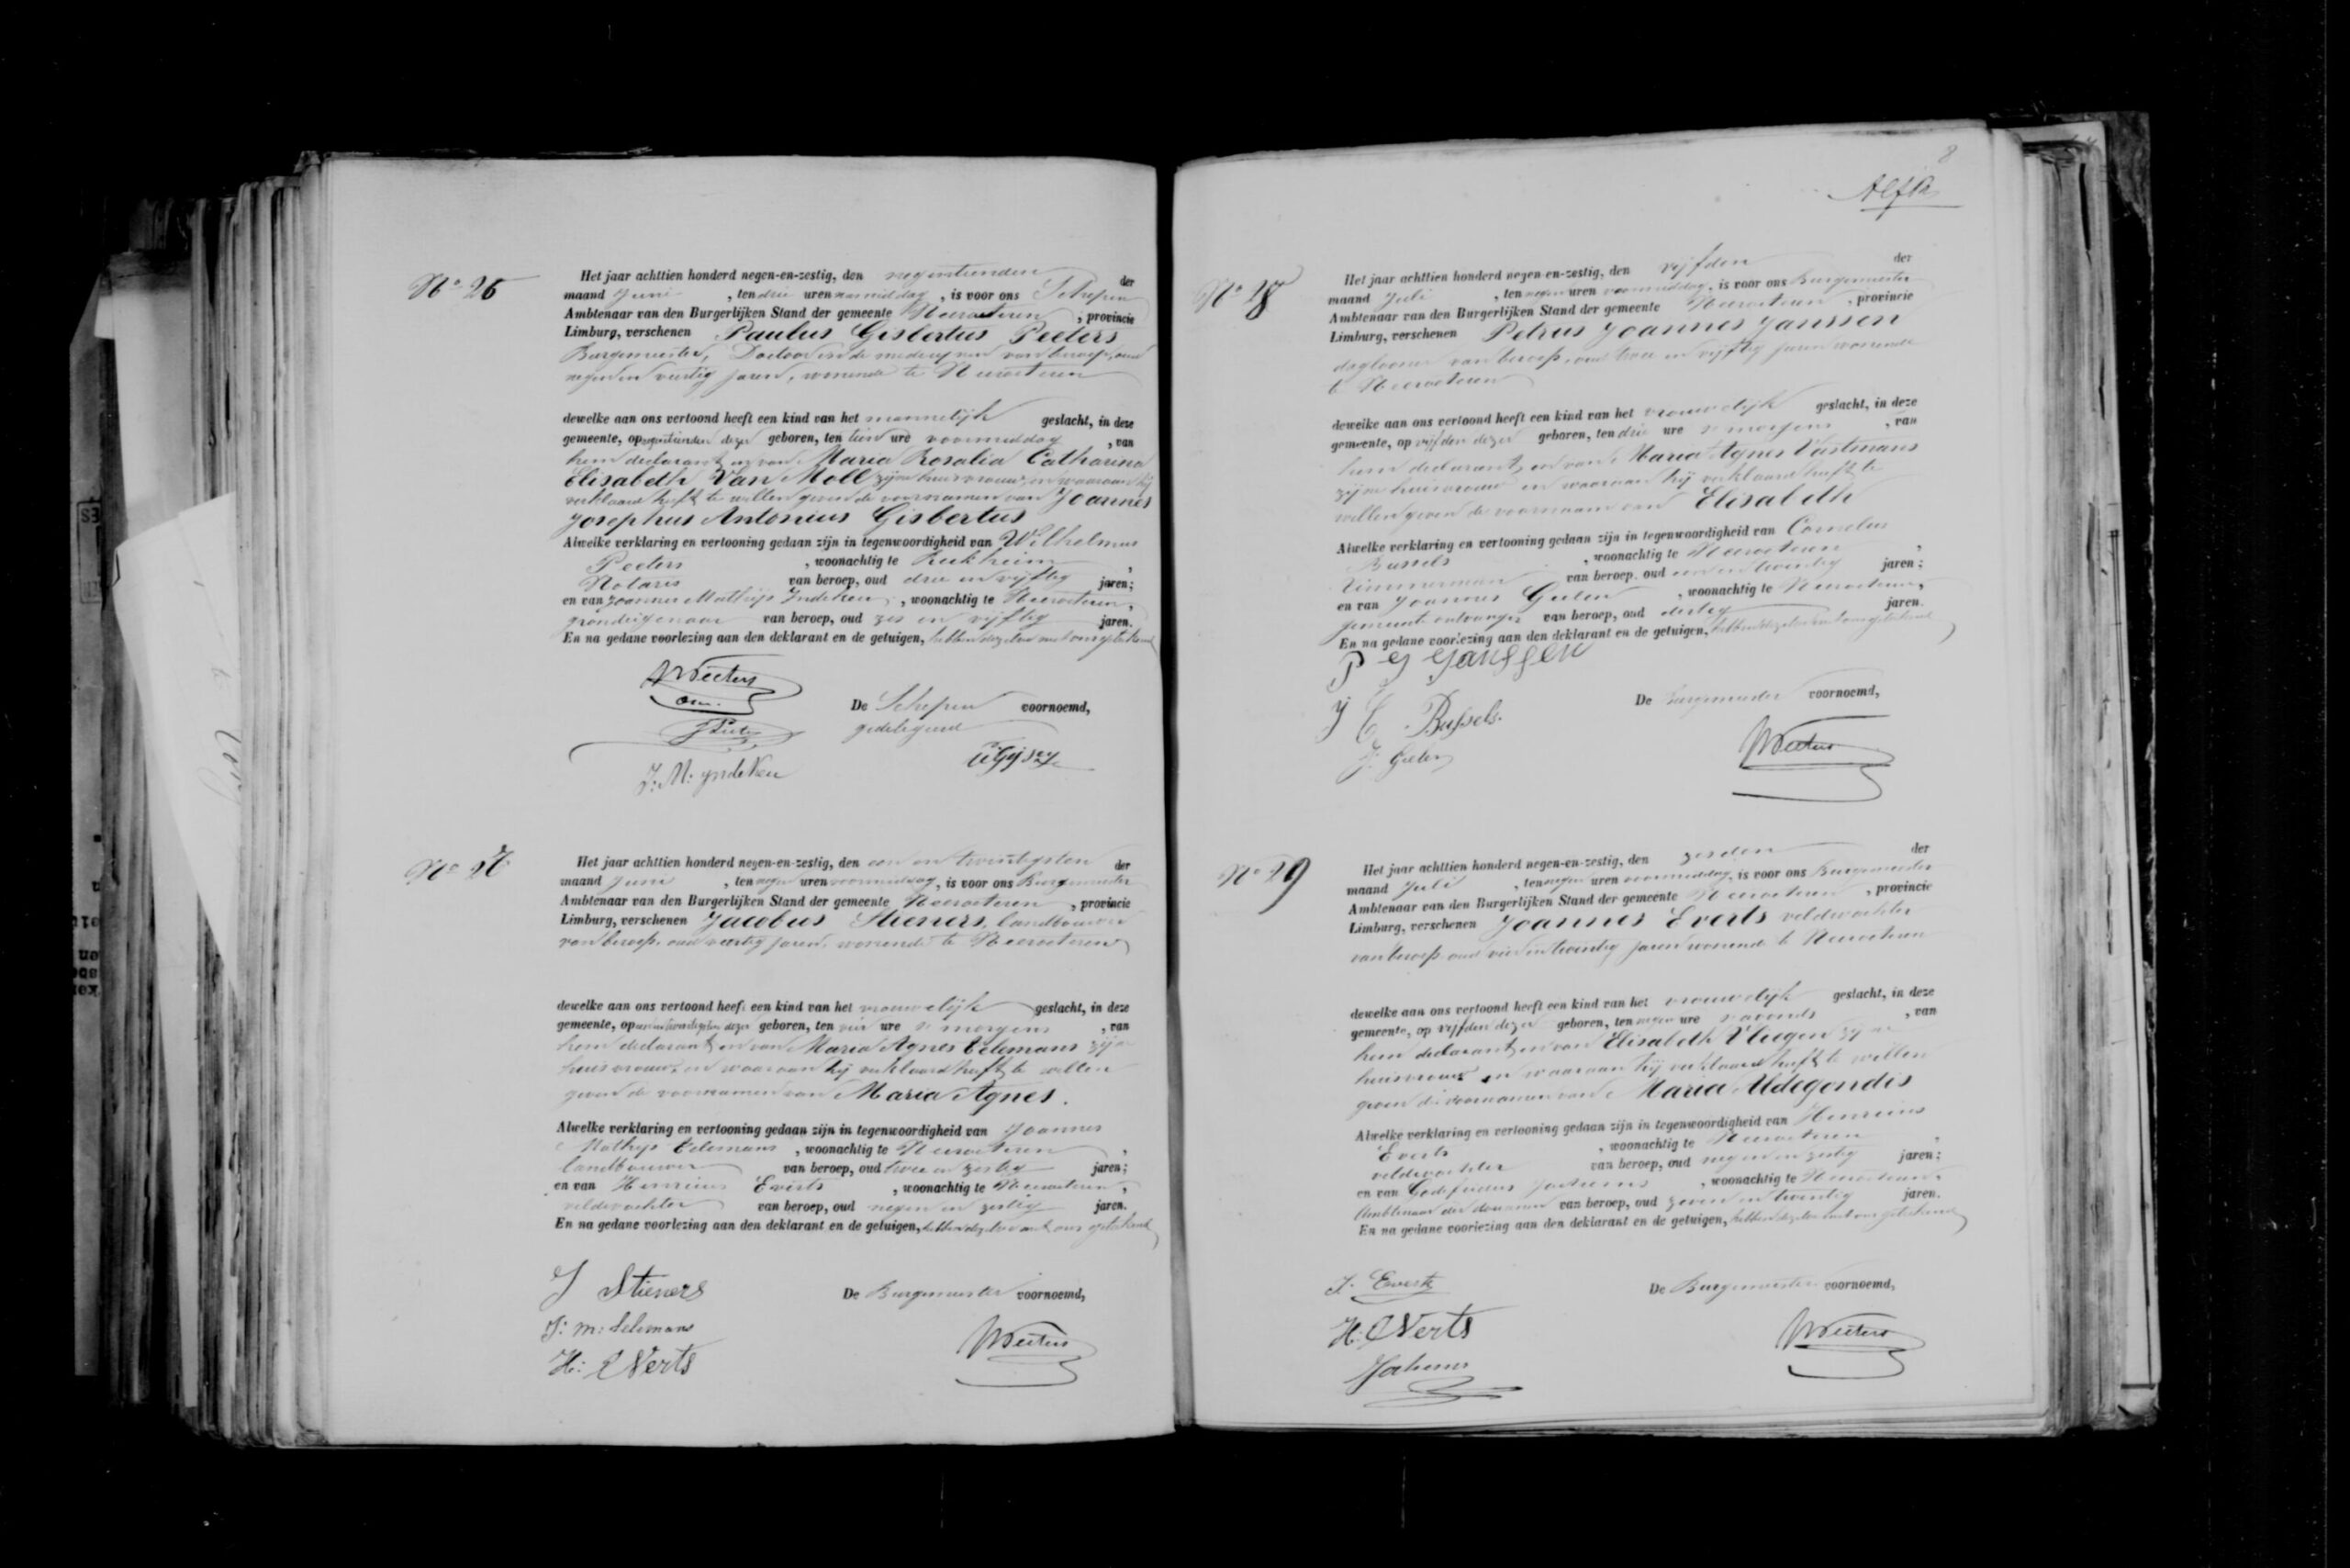 No 26
Het jaar achttien honderd negen-en-zestig, den negentienden der
maand Juni , ten drie uren namiddag , is voor ons Schepen
Ambtenaar van den Burgerlijken Stand der gemeente Neeroeteren , provincie
Limburg, verschenen Paulus Gisbertus Peeters
Burgemeester, Doctoor in de medecijnen van beroep, oud
negen en veertig jaren, wonende te Neeroeteren
dewelke aan ons vertoond heeft een kind van het mannelijk geslacht, in deze
gemeente, op negentienden dezer geboren, ten tien ure voormiddag , van
hem declarant, en van Maria Rosalia Catharina
Elisabeth Van Moll zijne huisvrouw, en waaraan hij
verklaard heeft te willen geven de voornamen van Joannes
Josephus Antonius Gisbertus
Alwelke verklaring en vertooning gedaan zijn in tegenwoordigheid van Wilhelmus
Peeters , woonachtig te Reckheim ,
Notaris van beroep, oud drie en vijftig jaren;
en van Joannes Mathijs Indeken , woonachtig te Neeroeteren,
grondeigenaar van beroep, oud zes en vijftig jaren.
En na gedane voorlezing aan den deklarant en de getuigen, hebben dezelve met ons geteekend
Peeters
J. M. yndeKeu
De Schepen voornoemd,
gedelegeerd
No 27
Het jaar achttien honderd negen-en-zestig, den een en twintigsten der
maand Juni , ten negen uren voormiddag, is voor ons Burgemeester
Ambtenaar van den Burgerlijken Stand der gemeente Neeroeteren , provincie
Limburg, verschenen Jacobus Stieners, landbouwer
van beroep, oud veertig jaren, wonende te Neeroeteren
dewelke aan ons vertoond heeft een kind van het vrouwelijk geslacht, in deze
gemeente, op een en twintigsten dezer geboren, ten vier ure 's morgens , van
hem declarant, en van Maria Agnes Celemans zijne
huisvrouw, en waaraan hij verklaard heeft te willen
geven de voornamen van Maria Agnes.
Alwelke verklaring en vertooning gedaan zijn in tegenwoordigheid van Joannes
Mathijs Celemans , woonachtig te Neeroeteren ,
landbouwer van beroep, oud twee en zestig jaren;
en van Henricus Everts , woonachtig te Neeroeteren,
veldwachter van beroep, oud negen en zestig jaren.
En na gedane voorlezing aan den deklarant en de getuigen, hebben dezelve met ons geteekend
J Stieners
J: m: Selemans
H: EVerts
De Burgemeester voornoemd,
Peeters
8
Alfa
No 28
Het jaar achttien honderd negen-en-zestig, den vijfden der
maand Juli , ten negen uren voormiddag, is voor ons Burgemeester
Ambtenaar van den Burgerlijken Stand der gemeente Neeroeteren , provincie
Limburg, verschenen Petrus Joannes Janssen
daglooner van beroep, oud twee en vijftig jaren wonende
te Neeroeteren
dewelke aan ons vertoond heeft een kind van het vrouwelijk geslacht, in deze
gemeente, op vijfden dezer geboren, ten drie ure 's morgens , van
hem declarant, en van Maria Agnes Vastmans
zijne huisvrouw en waaraan hij verklaard heeft te
willen geven de voornaam van Elisabeth
Alwelke verklaring en vertooning gedaan zijn in tegenwoordigheid van Cornelus
Bussels , woonachtig te Neeroeteren ,
Timmerman van beroep, oud een en twintig jaren;
en van Joannes Geelen , woonachtig te Neeroeteren,
gemeente ontvanger van beroep, oud dertig jaren.
En na gedane voorlezing aan den deklarant en de getuigen, hebben dezelve met ons geteekend
P J Janssen
C Bussels.
J. Geelen
De Burgemeester voornoemd,
Peeters
No 29
Het jaar achttien honderd negen-en-zestig, den zesden der
maand Juli , ten negen uren voormiddag, is voor ons Burgemeester
Ambtenaar van den Burgerlijken Stand der gemeente Neeroeteren , provincie
Limburg, verschenen Joannes Everts veldwachter
van beroep oud vier en twintig jaren wonende te Neeroeteren
dewelke aan ons vertoond heeft een kind van het vrouwelijk geslacht, in deze
gemeente, op vijfden dezer geboren, ten negen ure 's avonds , van
hem declarant, en van Elisabeth Vliegen zijne
huisvrouw en waaraan hij verklaard heeft te willen
geven de voornamen van Maria Aldegondis
Alwelke verklaring en vertooning gedaan zijn in tegenwoordigheid van Henricus
Everts , woonachtig te Neeroeteren ,
veldwachter van beroep, oud negen en zestig jaren;
en van Godefridus Jachums , woonachtig te Neeroeteren,
Ambtenaar der douanen van beroep, oud zeven en twintig jaren.
En na gedane voorlezing aan den deklarant en de getuigen, hebben dezelve met ons geteekend
J. Everts
H: EVerts
Jachums
De Burgemeester voornoemd,
Peeters